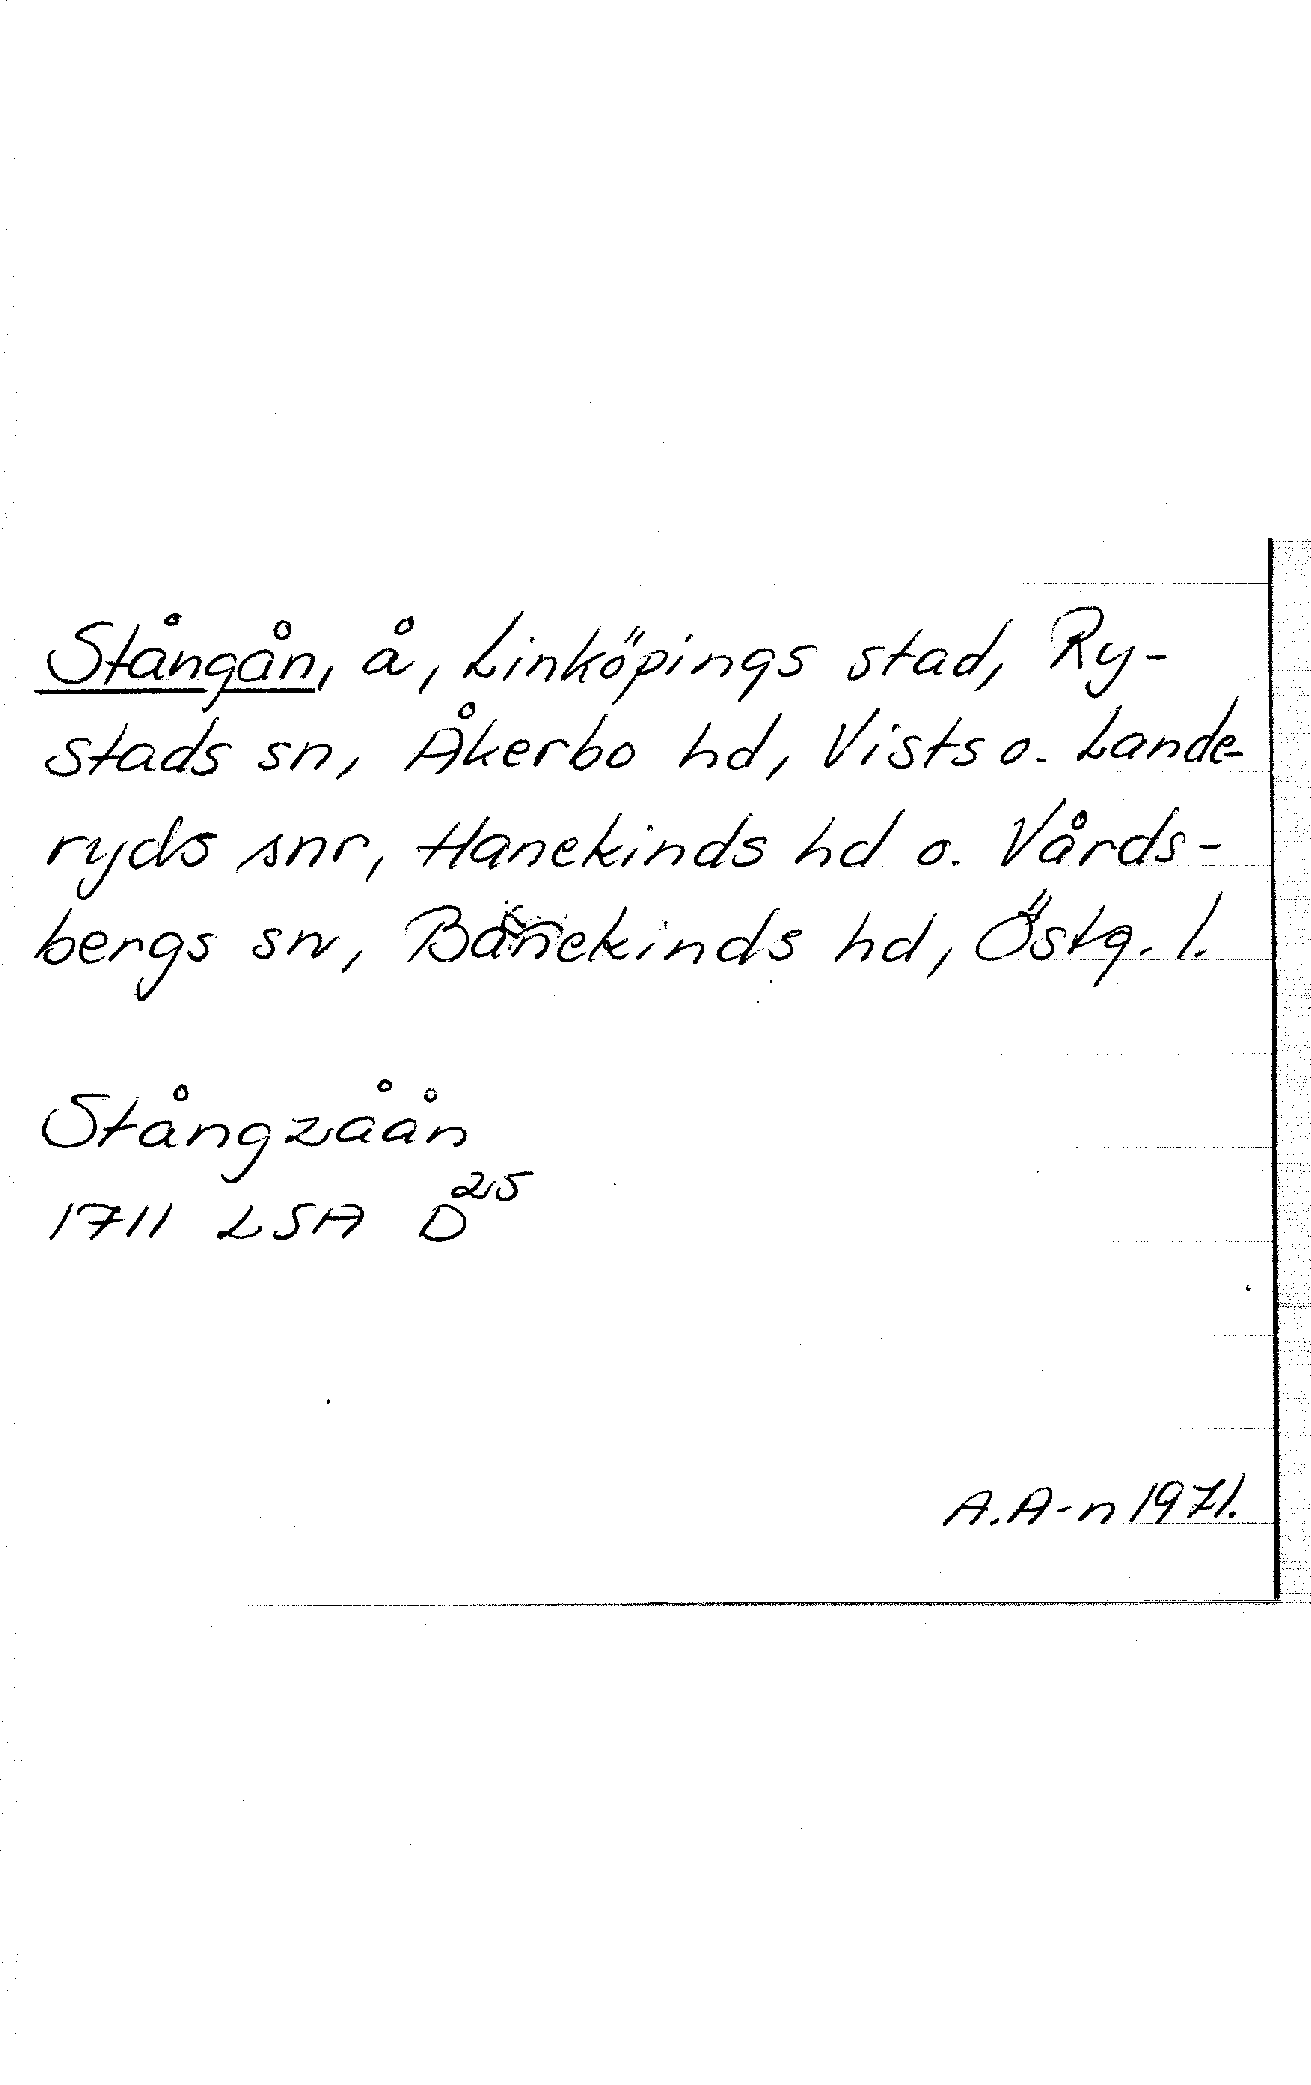 Stångån, å, Linköpings stad, Ry-
stads sn, Åkerbo hd, Vists o. Lande-
ryds snr, Hanekinds hd o. Vårds-
bergs sn, Banekinds hd, Östg. l.
Stångzåån
1711 LSA D25
A.A-n 1971.